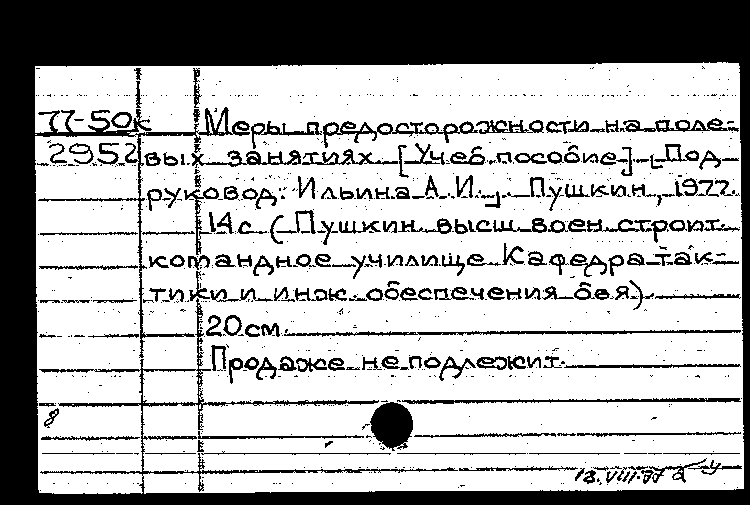 П-50к Меры предосторожности на поле-
2952 вых занятиях. [Учеб. пособие] [Под
руковод. Ильина А.И.]. Пушкин, 1977.
14с (Пушкин. высш. воен. строит.
командное училище Кафедра так-
тики и инж. обеспечения боя).
20см.
Продаже не подлежит.
8